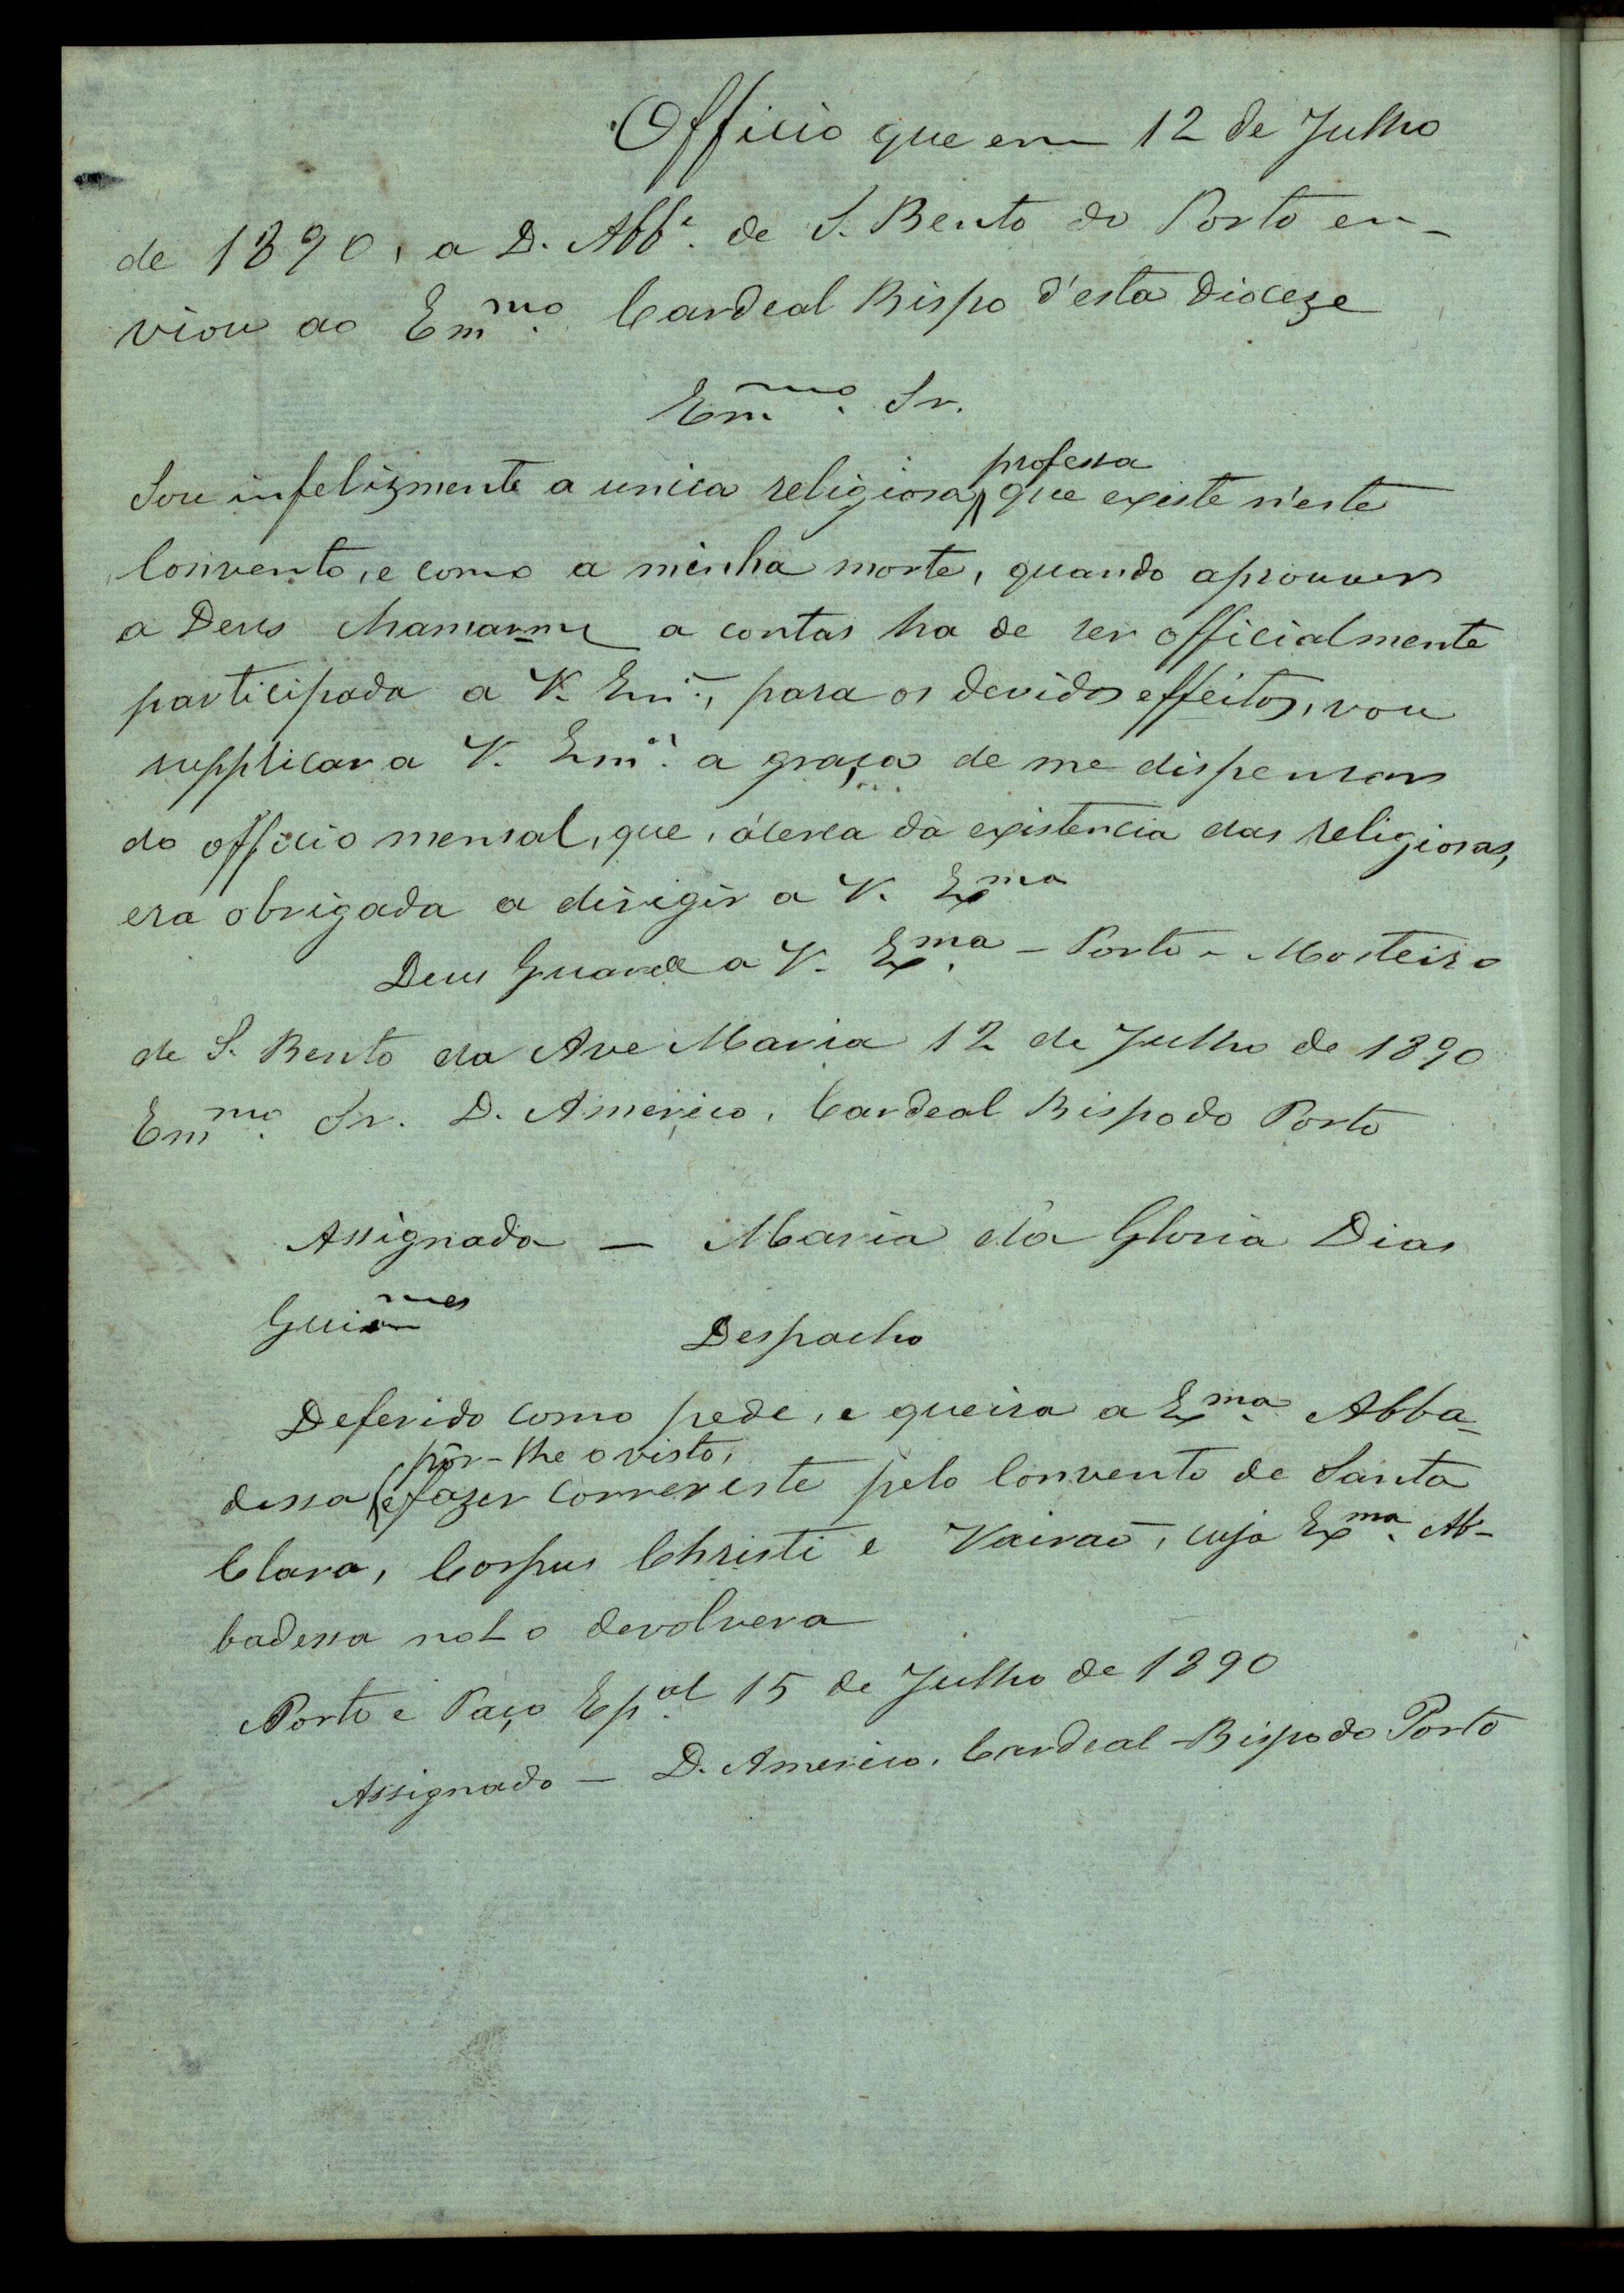 Officio que em 12 de Julho
de 1890, a D. Abb.ᵉ de S. Bento do Porto en-
viou ao Em.ᵐᵒ Cardeal Bispo d'esta Dioceze
Em.ᵐᵒ Sr.
professa
Sou infelizmente a unica religiosa, que existe n'este
Convento, e como a minha morte, quando aprouver
a Deus chamarme a contas ha de ser officialmente
participada a V. Em.ᵃ, para os devidos effeitos, vou
supplicar a V. Em.ᵃ a graça de me dispensar
do officio mensal, que, ácerca da existencia das religiosas,
era obrigada a dirigir a V. Exᵐᵃ
Deus Guarde a V. Ex.ᵐᵃ - Porto - Mosteiro
de S. Bento da Ave Maria 12 de Julho de 1890
Em.ᵐᵒ Sr. D. Americo, Cardeal Bispo do Porto
Assignada — Maria da Gloria Dias
Guimᵃᵉˢ
Despacho
Deferido como pede, e queira a Ex.ᵐᵃ Abba-
pôr-lhe o visto,
dessa e fazer correr este pelo Convento de Santa
Clara, Corpus Christi e Vairaõ, cuja Ex.ᵐᵃ Ab-
badessa nol-o devolvera
Porto e Paço Ep.ᵃˡ 15 de Julho de 1890
Assignado — D. Americo, Cardeal-Bispo do Porto